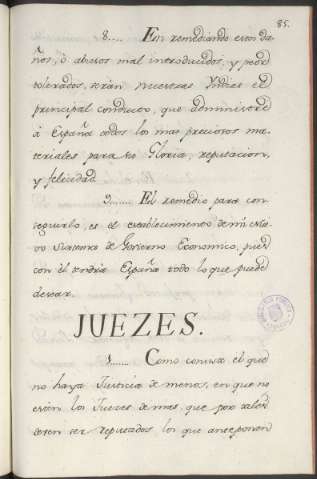 85.
8.... En remediando esos da-
ños, ó abusos mal introducidos, y peor
tolerados, serán nuestras Yndias el
principal conducto, que administre
à España todos los mas preciosos ma-
teriales para su Gloria, reputacion,
y felicidad
9....... El remedio para con-
seguirlo, es el establecimiento de mi Nue-
vo Systema de Govierno Economico, pues
con èl tendrà España todo lo que puede
desear.
JUEZES.
1....... Como conviene el que
no haya Justicia de menos, en que no
estèn los Jueces de mas, que por tales
deven ser reputados los que anteponen